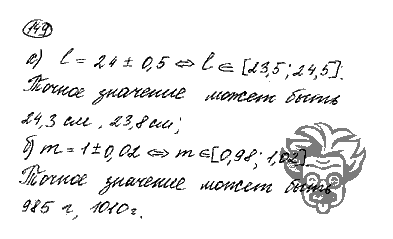 149
а) l = 24 ± 0,5 ⇔ l ∈ [23,5; 24,5].
Точное значение может быть
24,3 см, 23,8 см;
б) m = 1 ± 0,02 ⇔ m ∈ [0,98; 1,02]
Точное значение может быть
985 г, 1010 г.